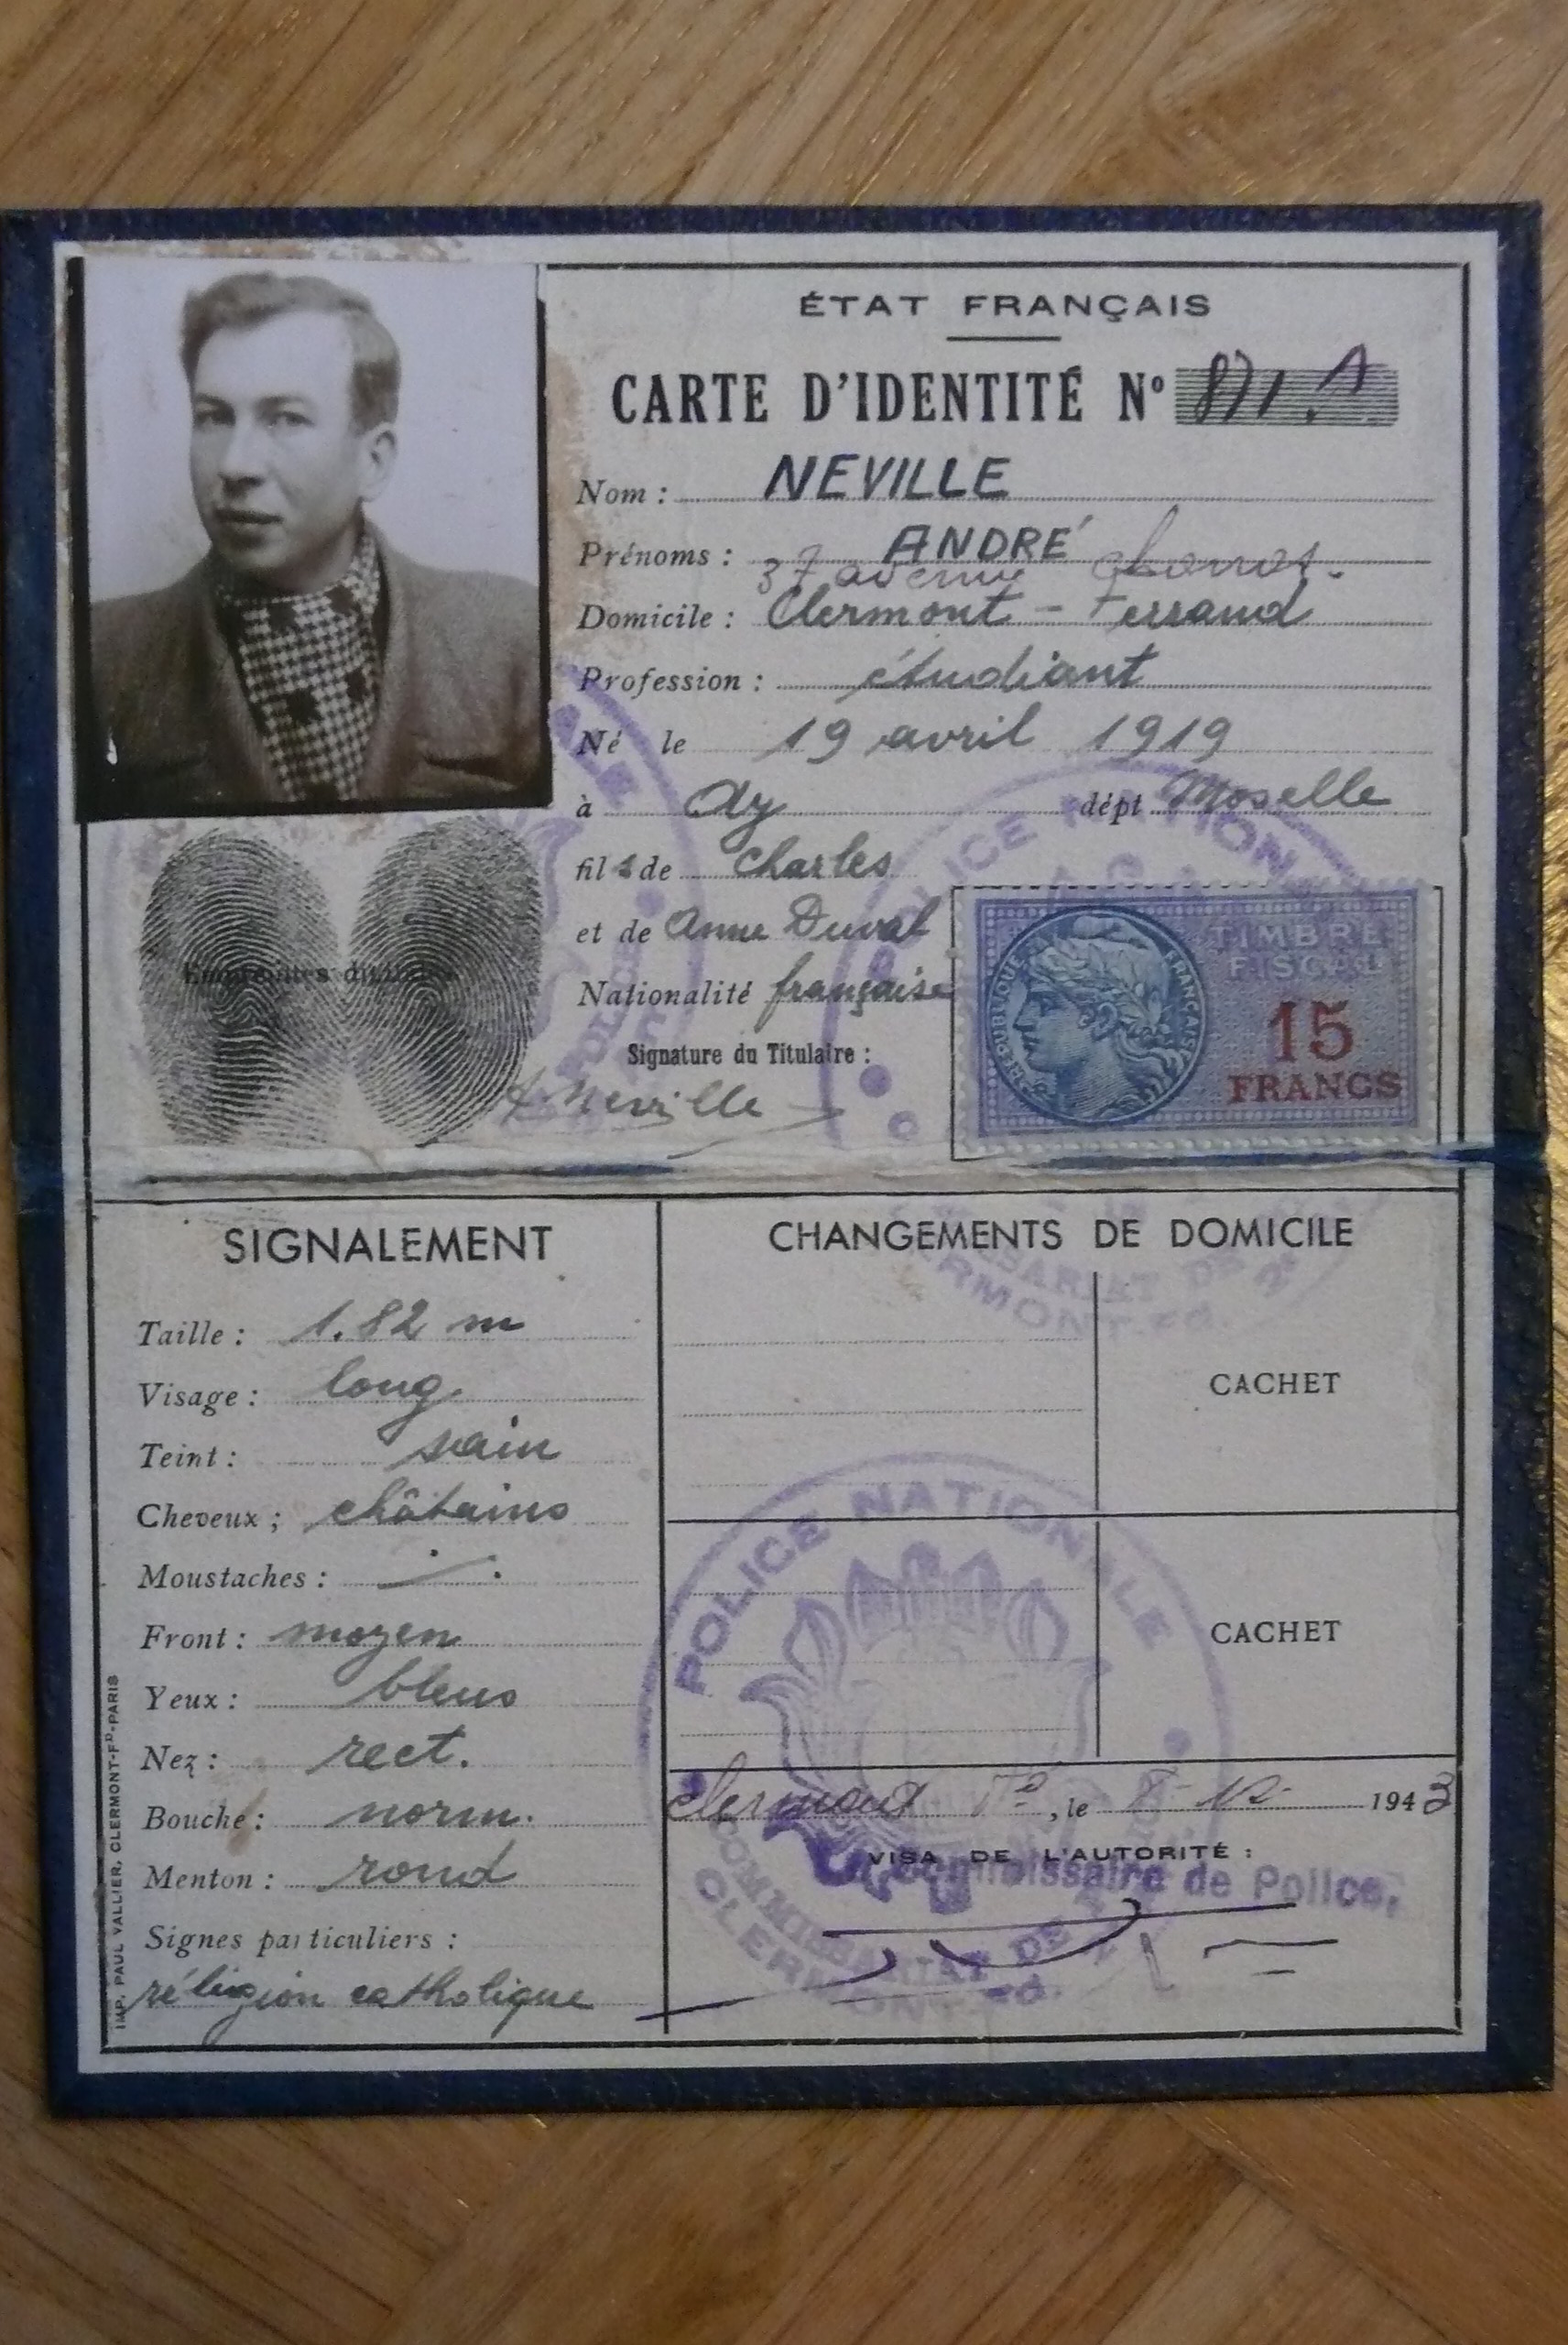 ÉTAT FRANÇAIS
CARTE D'IDENTITÉ Nº 871
Nom : NEVILLE
Prénoms : ANDRÉ
37 avenue
Domicile : Clermont-Ferrand
Profession : étudiant
Né le 19 avril 1919
à Ay dépt Moselle
fils de Charles
et de Anne Duval
Nationalité française
Signature du Titulaire :
A Neville
Empreintes digitales
RÉPUBLIQUE FRANÇAISE
TIMBRE
FISCAL
15
FRANCS
POLICE NATIONALE
SIGNALEMENT
Taille : 1.82 m
Visage : long
Teint : sain
Cheveux ; châtains
Moustaches :
Front : moyen
Yeux : bleus
Nez : rect.
Bouche : norm.
Menton : rond
Signes particuliers :
réligion catholique
IMP. PAUL VALLIER, CLERMONT-Fᴰ-PARIS
CHANGEMENTS DE DOMICILE
CACHET
CACHET
POLICE NATIONALE
Clermont Fd, le 1943
VISA DE L'AUTORITÉ :
Commissaire de Police,
COMMISSARIAT DE
CLERMONT-Fd.